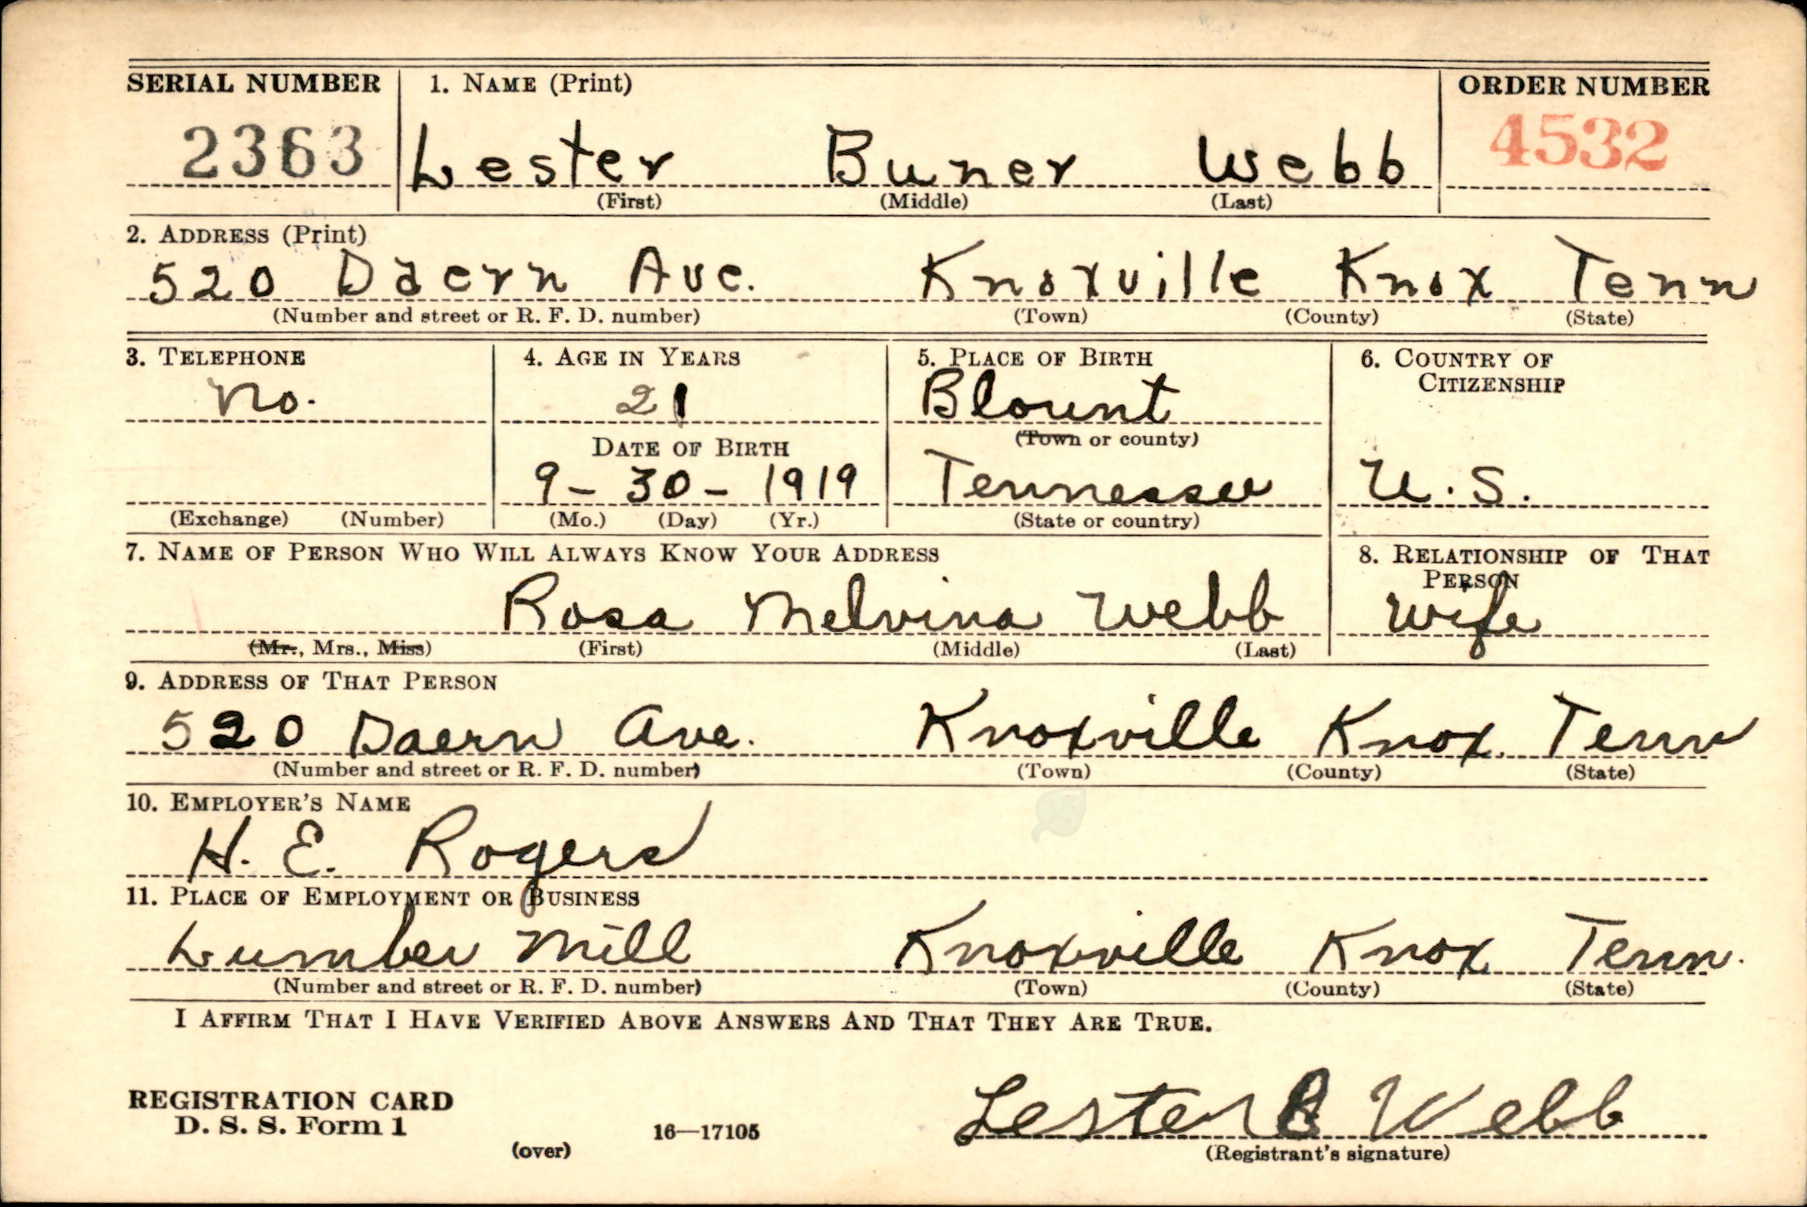 SERIAL NUMBER 1. NAME (Print) ORDER NUMBER
2363 Lester Buner Webb 4532
(First) (Middle) (Last)
2. ADDRESS (Print)
520 Daern Ave. Knoxville Knox Tenn
(Number and street or R. F. D. number) (Town) (County) (State)
3. TELEPHONE 4. AGE IN YEARS 5. PLACE OF BIRTH 6. COUNTRY OF
CITIZENSHIP
No. 21 Blount
(Town or county)
DATE OF BIRTH
9-30-1919 Tennessee U.S.
(Exchange) (Number) (Mo.) (Day) (Yr.) (State or country)
7. NAME OF PERSON WHO WILL ALWAYS KNOW YOUR ADDRESS 8. RELATIONSHIP OF THAT
PERSON
Rosa Melvina Webb Wife
(Mr., Mrs., Miss) (First) (Middle) (Last)
9. ADDRESS OF THAT PERSON
520 Daern Ave. Knoxville Knox Tenn
(Number and street or R. F. D. number) (Town) (County) (State)
10. EMPLOYER'S NAME
H. E. Rogers
11. PLACE OF EMPLOYMENT OR BUSINESS
Lumber Mill Knoxville Knox Tenn.
(Number and street or R. F. D. number) (Town) (County) (State)
I AFFIRM THAT I HAVE VERIFIED ABOVE ANSWERS AND THAT THEY ARE TRUE.
REGISTRATION CARD
D. S. S. Form 1
(over) 16—17105
Lester B Webb
(Registrant's signature)